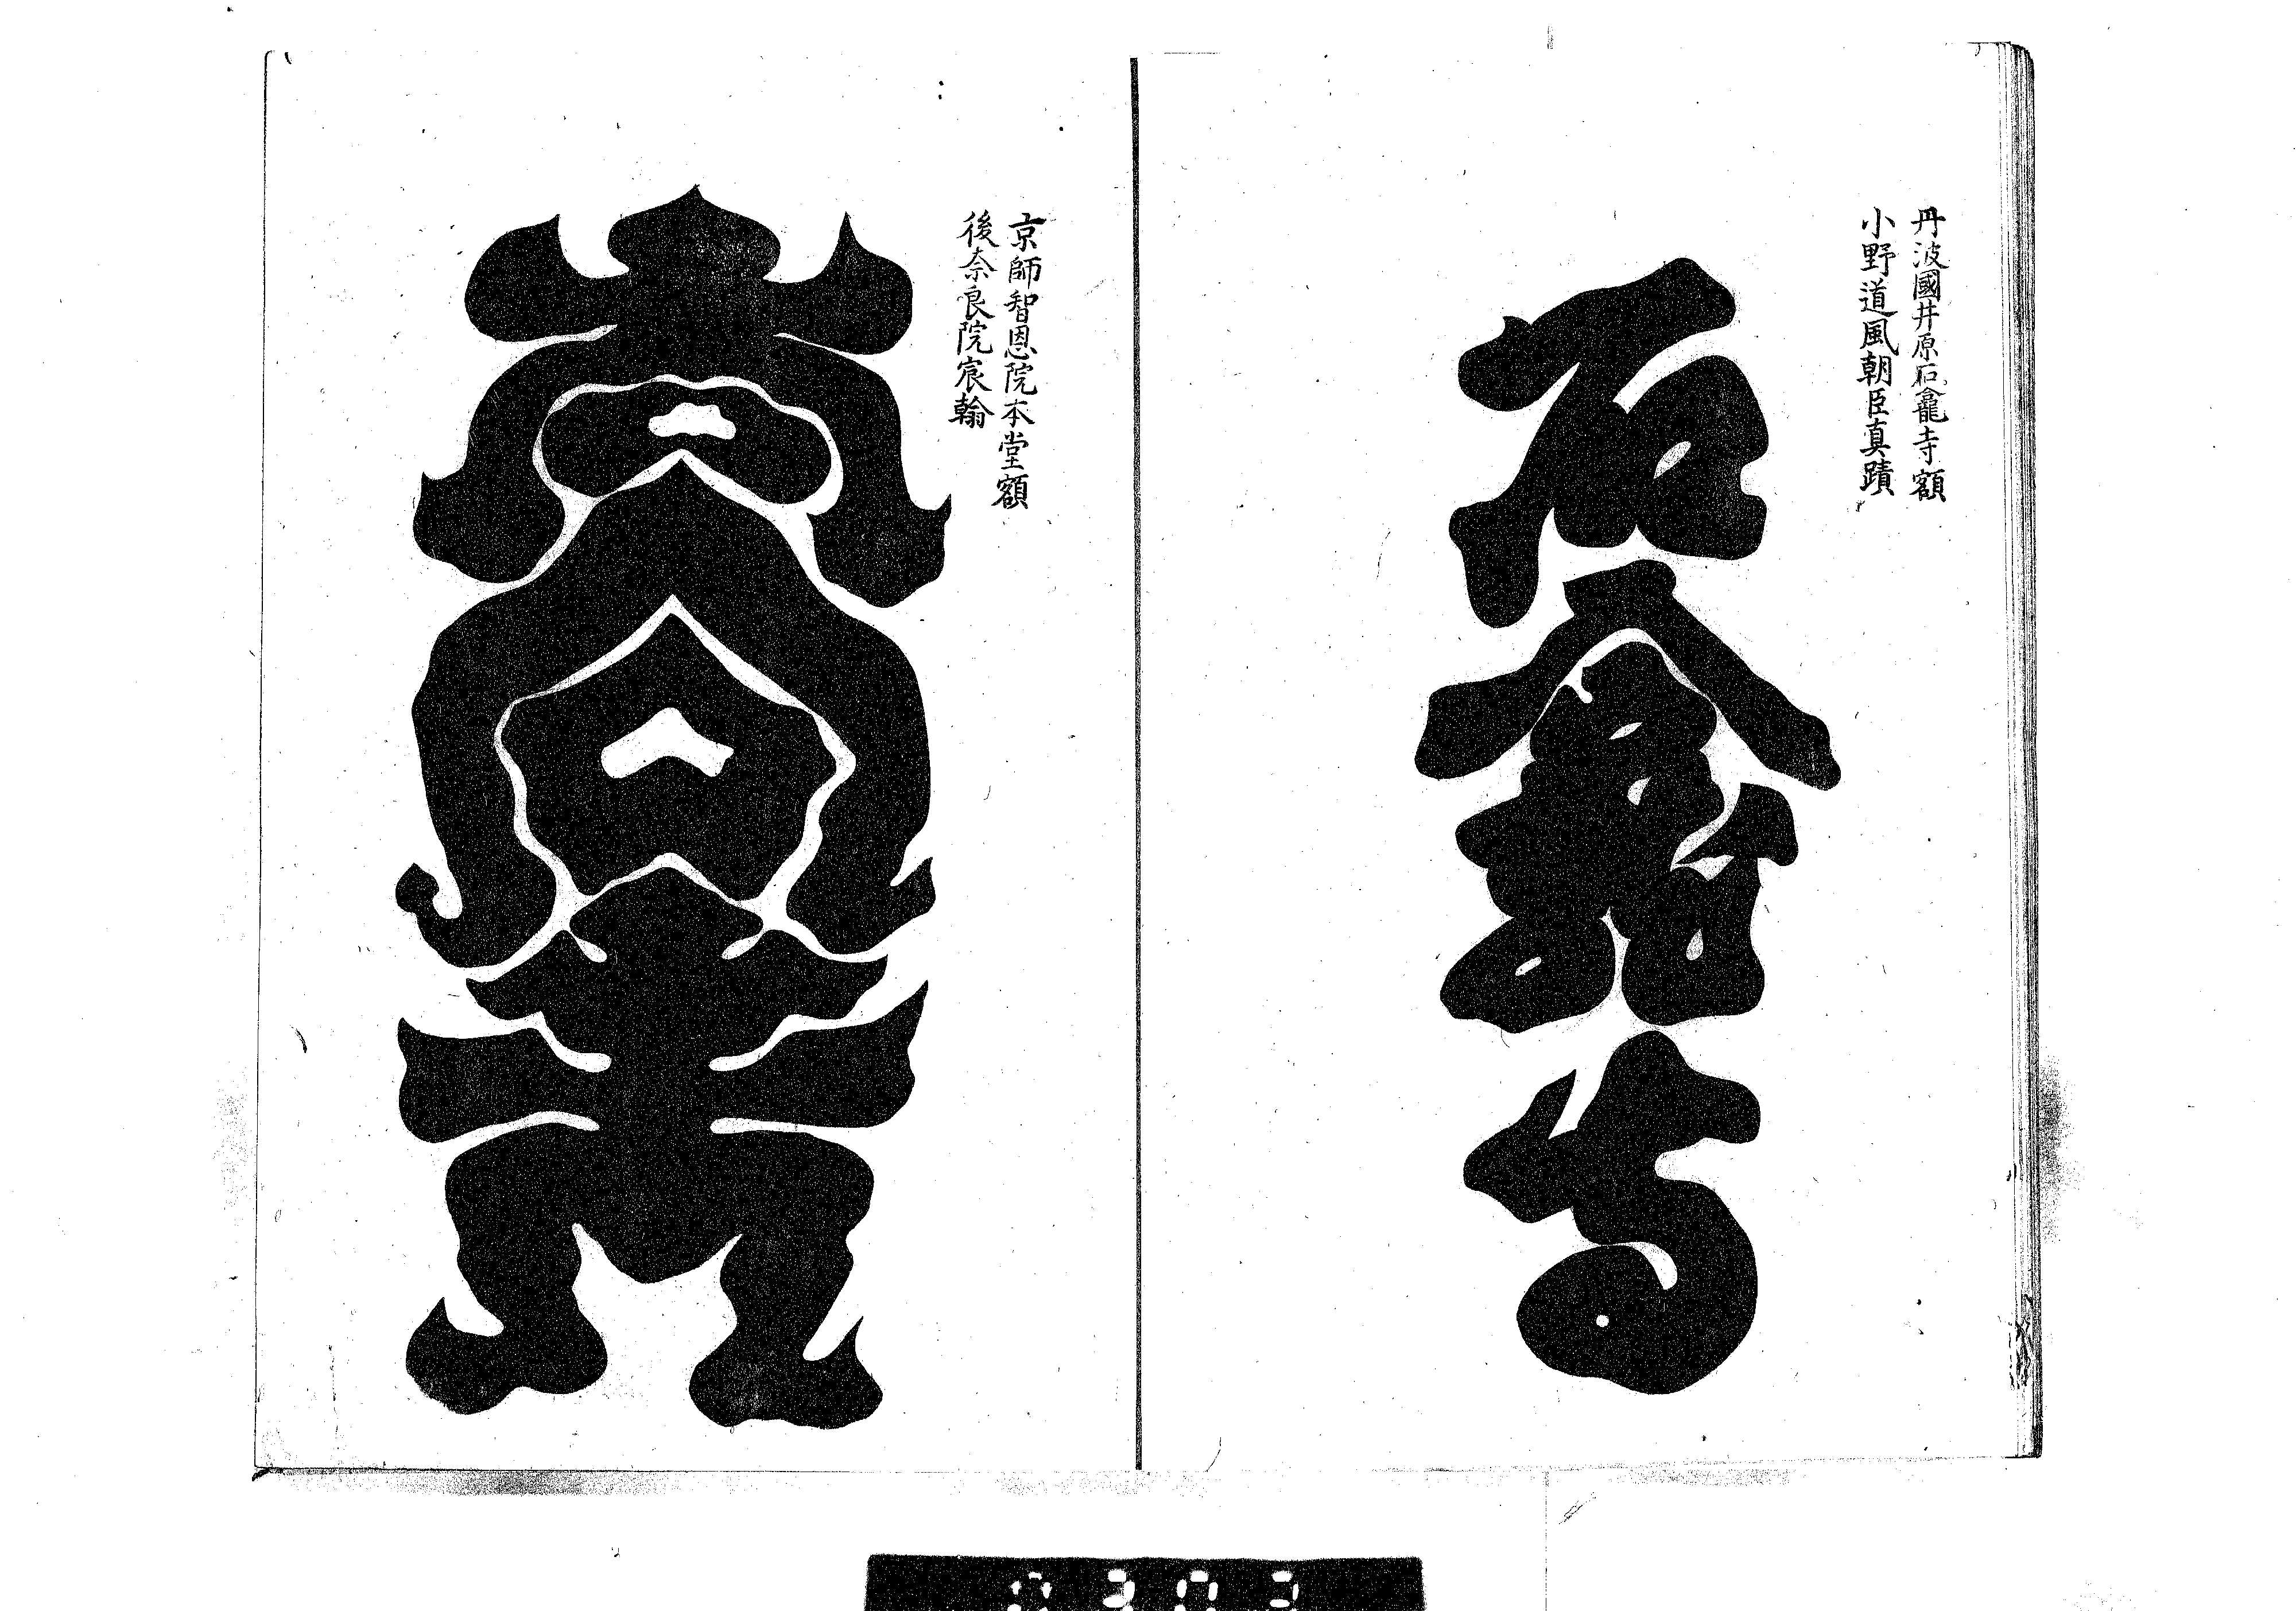 丹波國井原石龕寺額
小野道風朝臣真蹟
石龕寺
京師智恩院本堂額
後奈良院宸翰